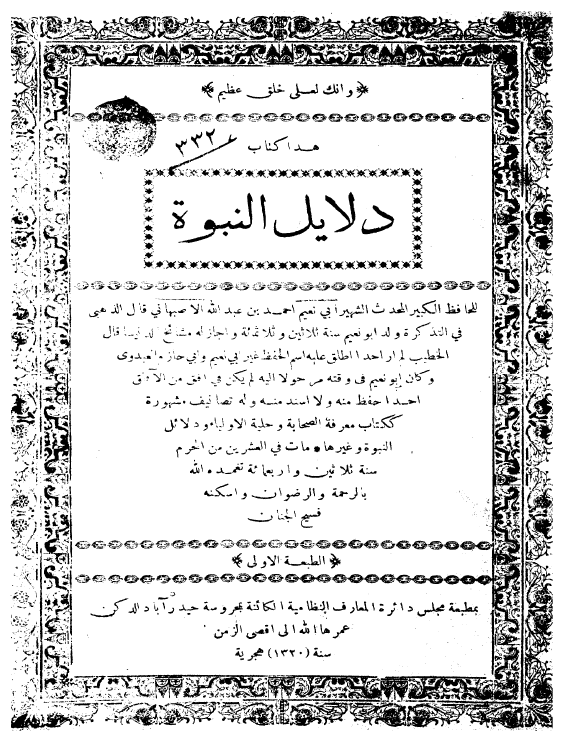 ﴿ وانك لعلى خلق عظيم ﴾
هذا كتاب ٣٣٢
دلايل النبوة
للحافظ الكبير المحدث الشهير ابي نعيم احمد بن عبد الله الاصبهاني قال الذهبي
في التذكرة ولد ابو نعيم سنة ثلاثين وثلاثمائة واجاز له مشائخ الدنيا قال
الخطيب لم ار احدا اطلق عليه اسم الحفظ غير ابي نعيم وابي حازم العبدوى
وكان ابو نعيم فى وقته مرحولا اليه لم يكن في افق من الآفاق
احد احفظ منه ولا اسند منه وله تصانيف مشهورة
ككتاب معرفة الصحابة وحلية الاولياء ودلائل
النبوة وغيرها • مات في العشرين من المحرم
سنة ثلاثين واربعمائة تغمده الله
بالرحمة والرضوان واسكنه
فسيح الجنان
﴿ الطبعة الاولى ﴾
بمطبعة مجلس دائرة المعارف النظامية الكائنة بمحروسة حيدرآباد الدكن
عمرها الله الى اقصى الزمن
سنة (١٣٢٠) هجرية